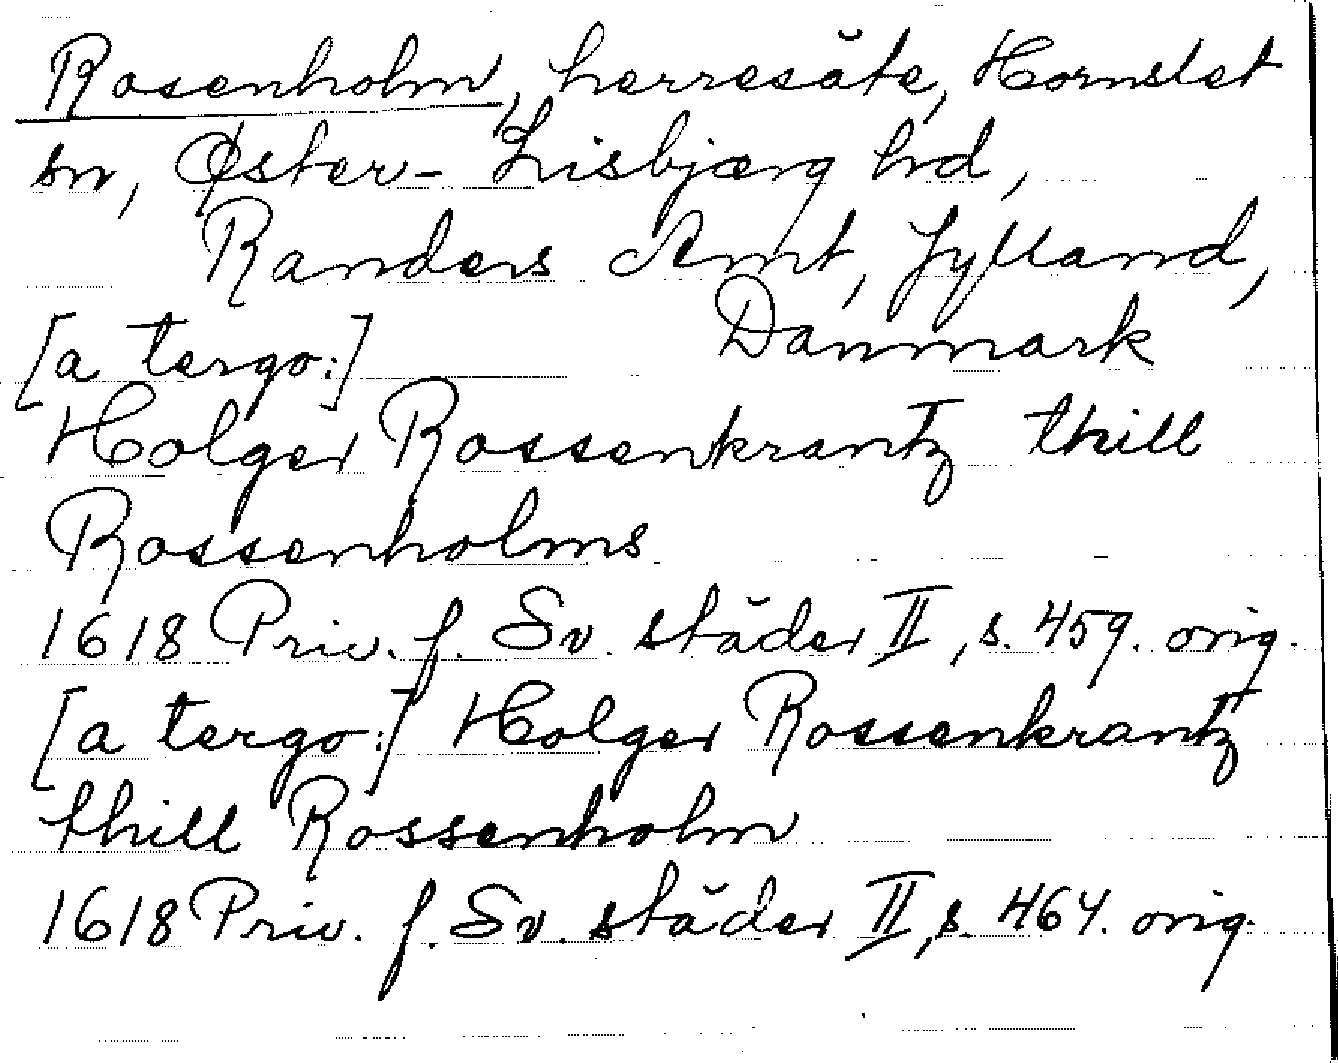 Rosenholm, herresäte, Hornslet
sn, Øster-Lisbjærg hd,
Randers Amt, Jylland,
Danmark
[a tergo:]
Holger Rossenkrantz thill
Rossenholms
1618 Priv. f. Sv. städer II, s. 459. orig.
[a tergo:] Holger Rossenkrantz
thill Rossenholm
1618 Priv. f. Sv. städer II, s. 464. orig.